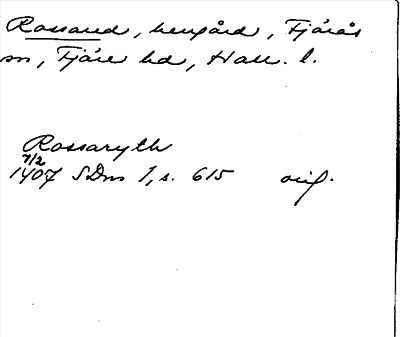 Rossared, herrgård, Fjärås
sn, Fjäre hd, Hall. l.
Rossaryth
7/2
1407 SDns 1, s. 615 orig.